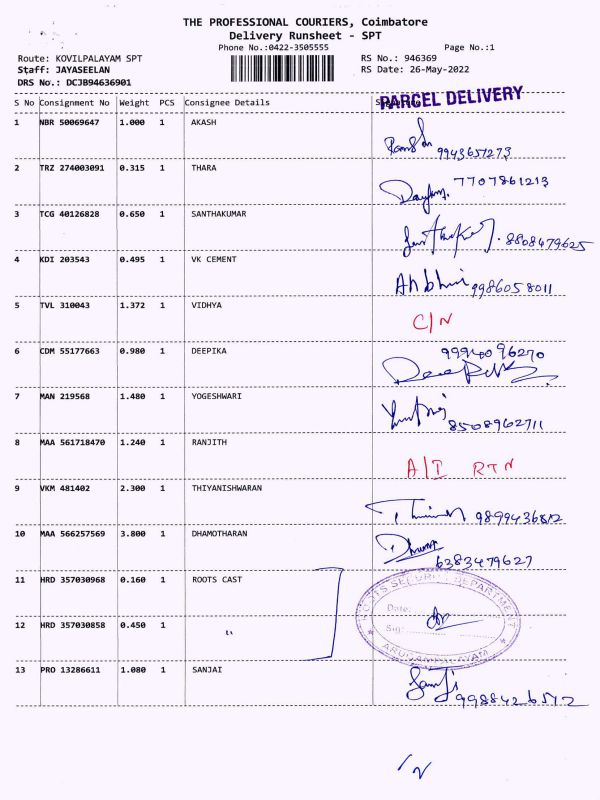 THE PROFESSIONAL COURIERS, Coimbatore
Delivery Runsheet - SPT
Phone No.:0422-3505555 Page No.:1
Route: KOVILPALAYAM SPT RS No.: 946369
Staff: JAYASEELAN RS Date: 26-May-2022
DRS No.: DCJB94636901
S No Consignment No Weight PCS Consignee Details
PARCEL DELIVERY
1 NBR 50069647 1.000 1 AKASH
9943657273
2 TRZ 274003091 0.315 1 THARA
7707861213
3 TCG 40126828 0.650 1 SANTHAKUMAR
8808479625
4 KDI 203543 0.495 1 VK CEMENT
9986058011
5 TVL 310043 1.372 1 VIDHYA
C/N
6 CDM 55177663 0.980 1 DEEPIKA
9994096270
7 MAN 219568 1.480 1 YOGESHWARI
8508962711
8 MAA 561718470 1.240 1 RANJITH
A/I RTN
9 VKM 481402 2.300 1 THIYANISHWARAN
10 MAA 566257569 3.800 1 DHAMOTHARAN
6383479627
11 HRD 357030968 0.160 1 ROOTS CAST
ROOTS SECURITY DEPARTMENT
Date:
12 HRD 357030858 0.450 1 "
Sig:
ARUGAMPALAYAM
13 PRO 13286611 1.080 1 SANJAI
Sanji
9988426572